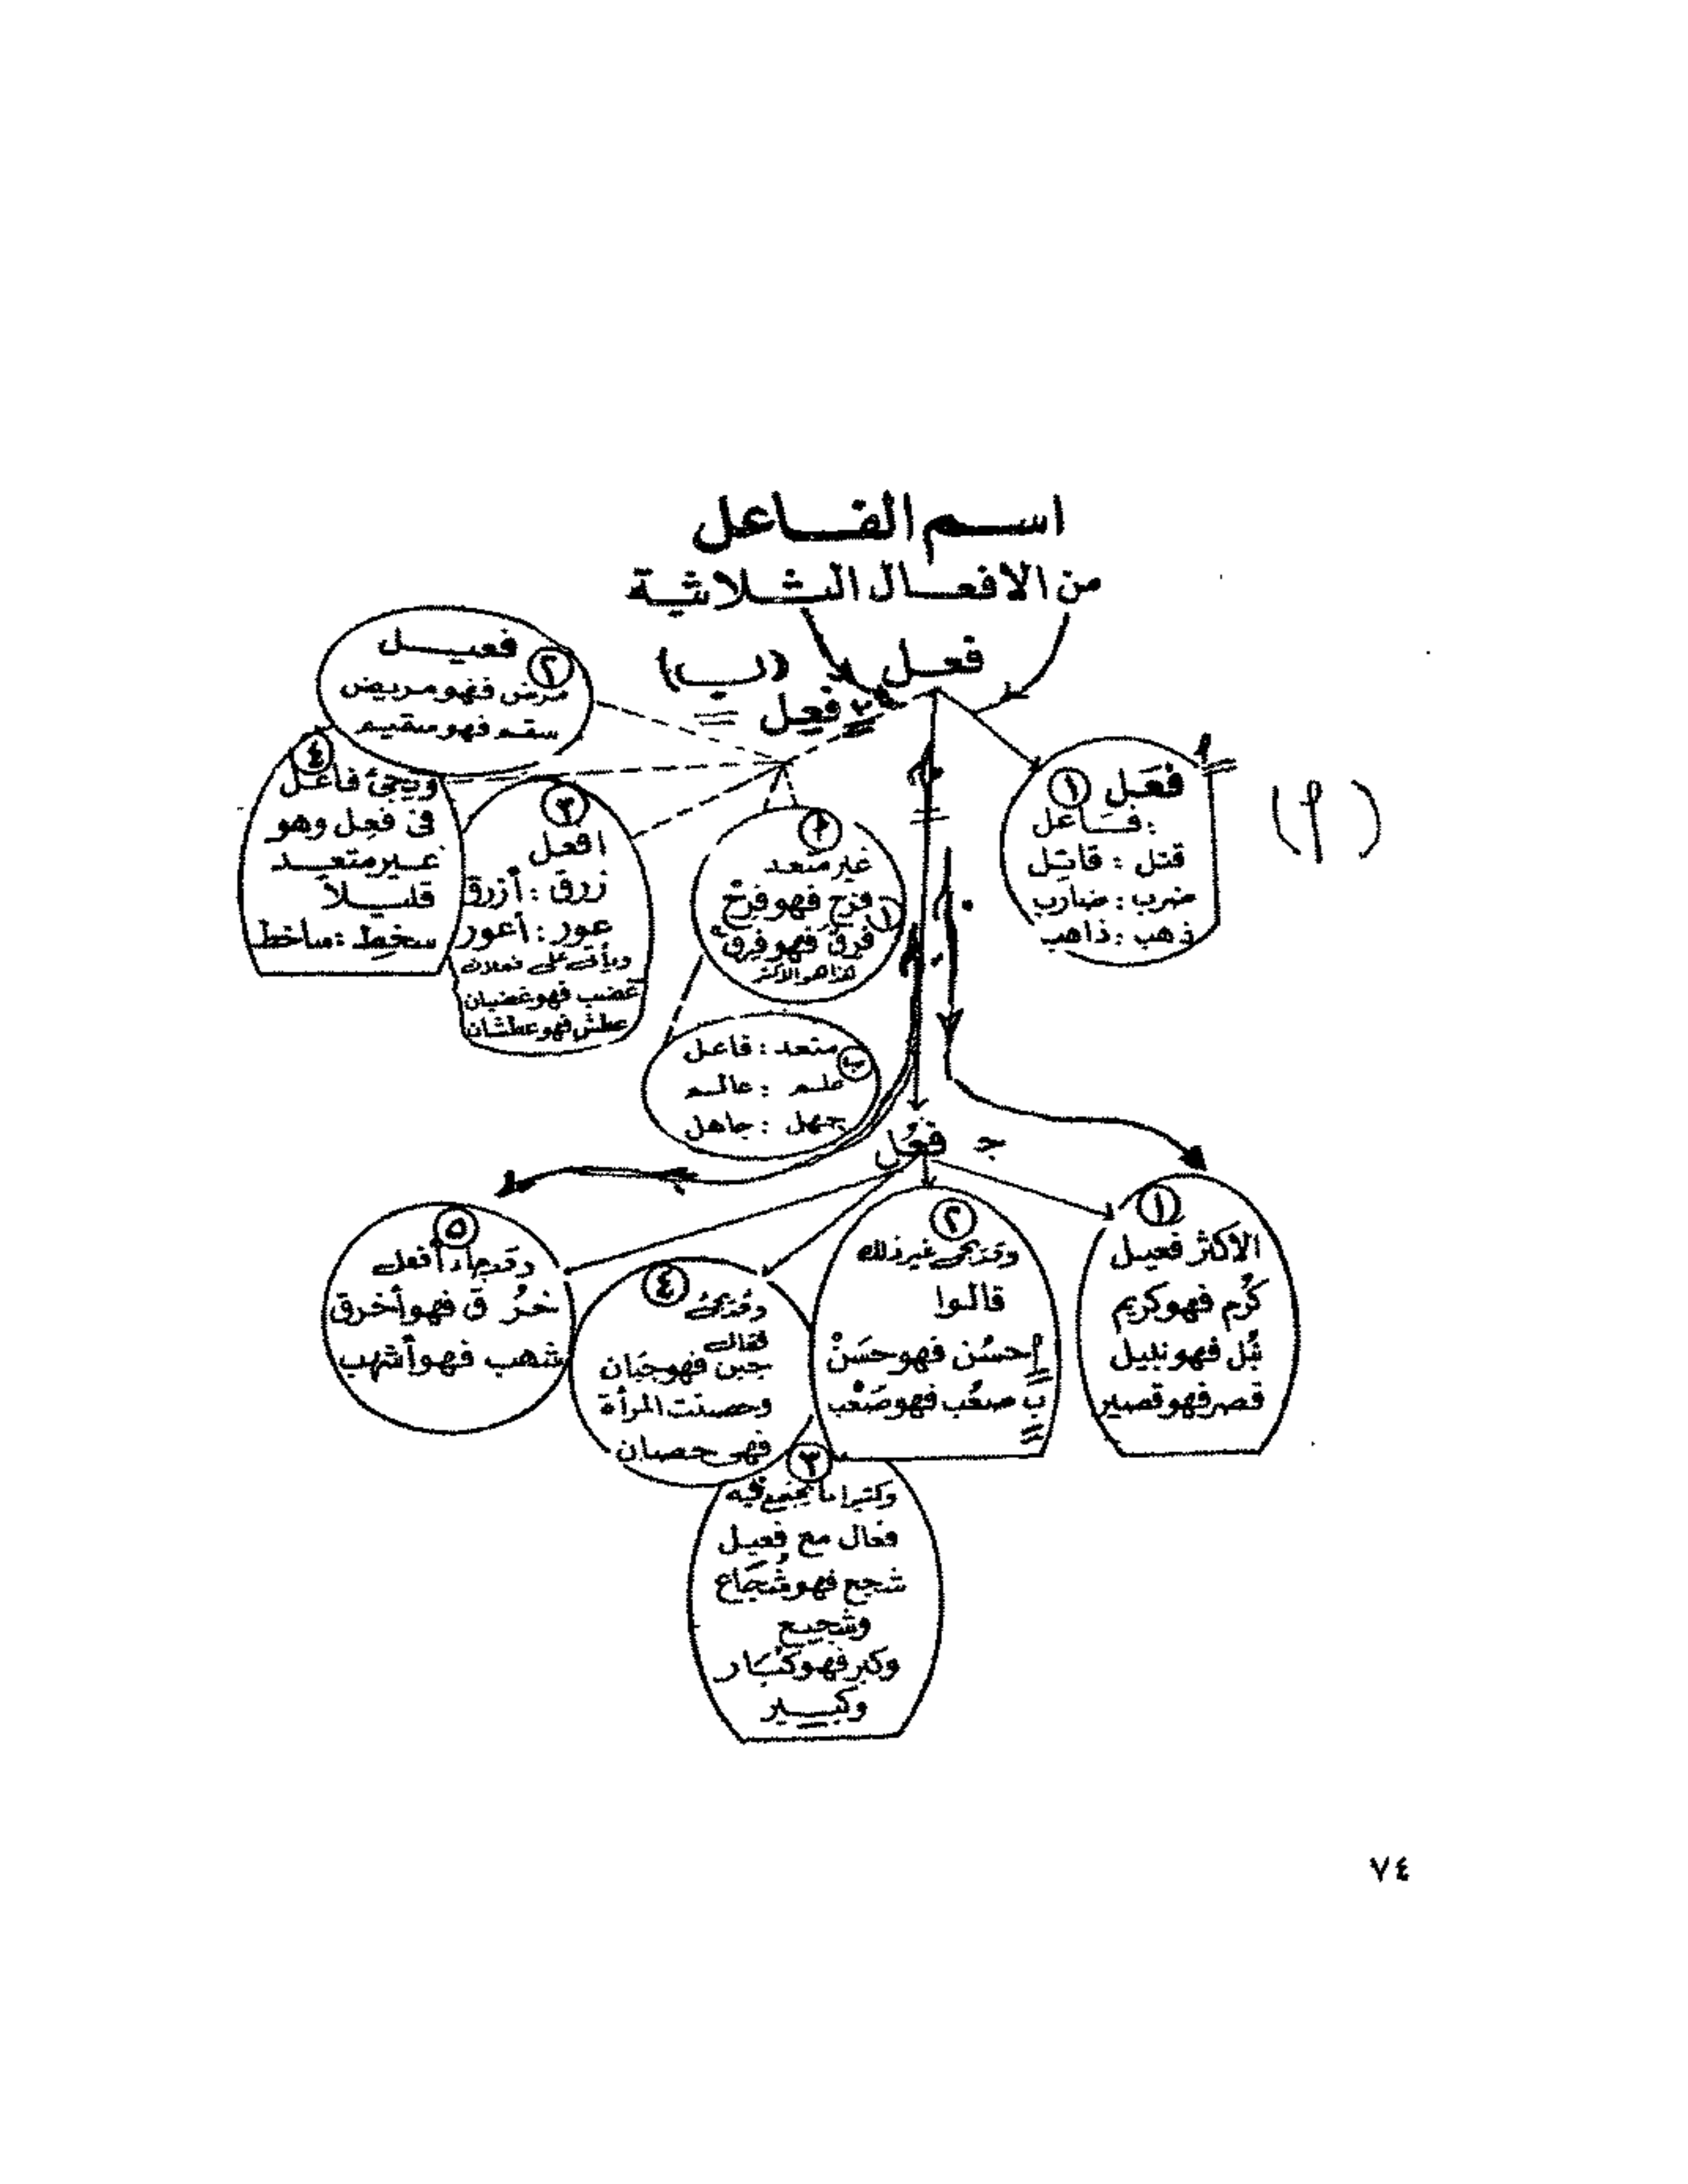 اسم الفاعل
من الافعال الثلاثية
فعل
(أ)
أ
فَعَل ①
: فاعل
قتل : قاتِل
ضرب : ضارب
ذهب : ذاهب
(ب)
ب فعِل =
غير متعد
① فرِح فهو فرِحٌ
فرِق فهو فرِقٌ
هذا هو الاكثر
ب متعد : فاعل
علم : عالم
جهل : جاهل
② فعيل
مرض فهو مريض
سقم فهو سقيم
③
افعل
زرق : أزرق
عور : أعور
ويأتي على فعلان
غضب فهو غضبان
عطش فهو عطشان
④
ويجئ فاعل
فى فعِل وهو
غير متعد
قليلاً
سخِط : ساخط
جـ فعُل
①
الأكثر فعيل
كرُم فهو كريم
نبُل فهو نبيل
قصر فهو قصير
②
وقد يجئ غير ذلك
قالوا
أ حسُن فهو حسَنْ
ب صعُب فهو صَعْب
③
وكثيرا ما يجتمع فيه
فعال مع فعيل
شجع فهو شُجَاع
وشجيع
وكبر فهو كُبَار
وكبير
④
وقد يجئ
فعال
جبن فهو جبَان
وحصنت المرأة
فهى حصان
⑤
وقد جاء أفعل
خرُ ق فهو أخرق
شهب فهو أشهب
٧٤